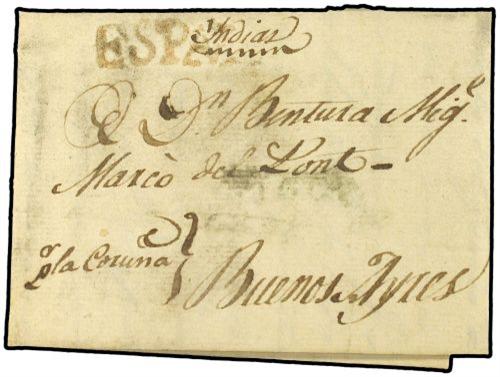 Indias
ESPAÑA
A Dn Bentura Migl
Marcò del Pont
pr la Coruña
Buenos Ayres